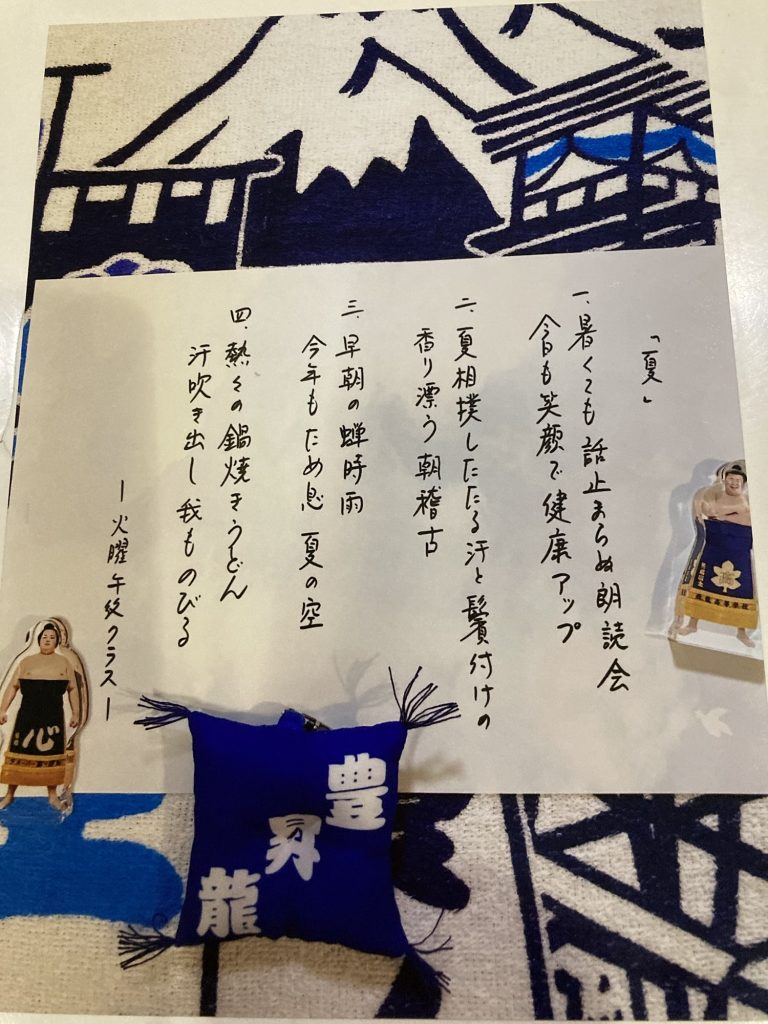 「夏」
一、暑くても話止まらぬ朗読会
今日も笑顔で健康アップ
二、夏相撲したたる汗と鬢付けの
香り漂う朝稽古
三、早朝の蝉時雨
今年もため息夏の空
四、熱々の鍋焼きうどん
汗吹き出し我ものびる
ー火曜午後クラスー
豊
昇
龍
心